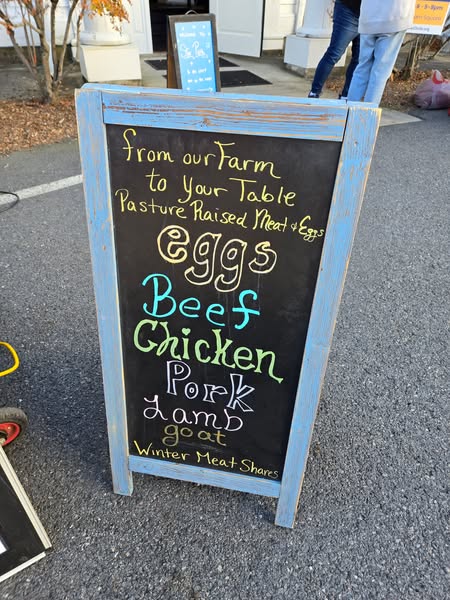 from our Farm
to Your Table
Pasture Raised Meat & Eggs
eggs
Beef
Chicken
Pork
Lamb
goat
Winter Meat Shares